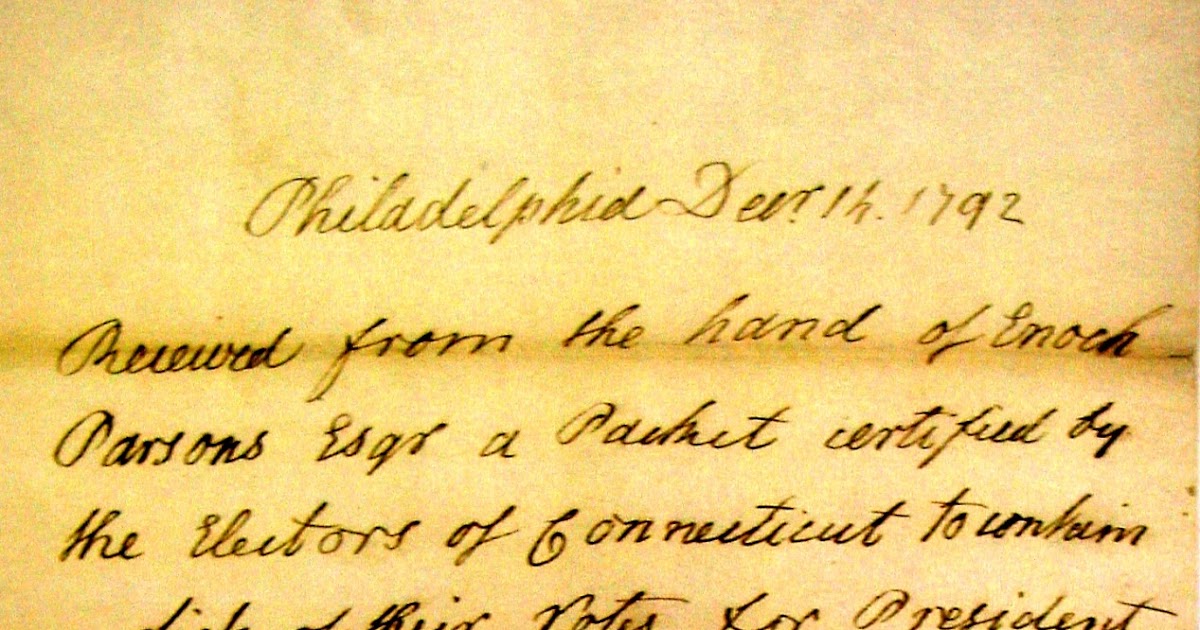 Philadelphia Decr. 14. 1792
Received from the hand of Enoch
Parsons Esqr a Packet certified by
the Electors of Connecticut to contain
of their Votes for President